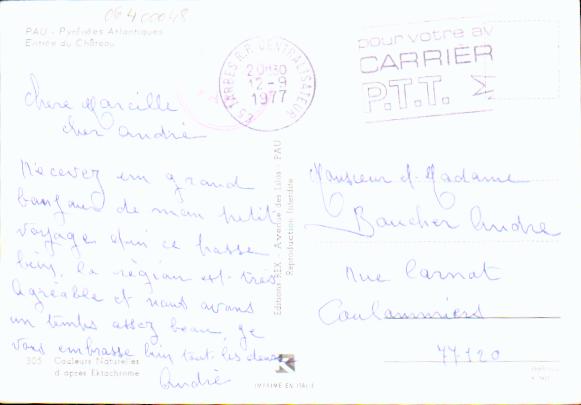 06400048
PAU - Pyrénées Atlantiques
Entrée du Château
65 TARBES R.P. CENTRALISATEUR
20H30
12-9
1977
pour votre av
CARRIÈR
P.T.T.
Chere Marcille
cher André
Recevez un grand
bonjour de mon petit
voyage qui ce passe
bien, la région est très
agréable et nous avons
un temps assez beau, ge
vous embrasse bien tout les deux
André
Monsieur et Madame
Boucher André
Rue Carnot
Coulommiers
77120
Editions REX - Avenue des Lilas - PAU
Reproduction Interdite
305 Couleurs Naturelles
d'après Ektachrome
IMPRIMÉ EN ITALIE